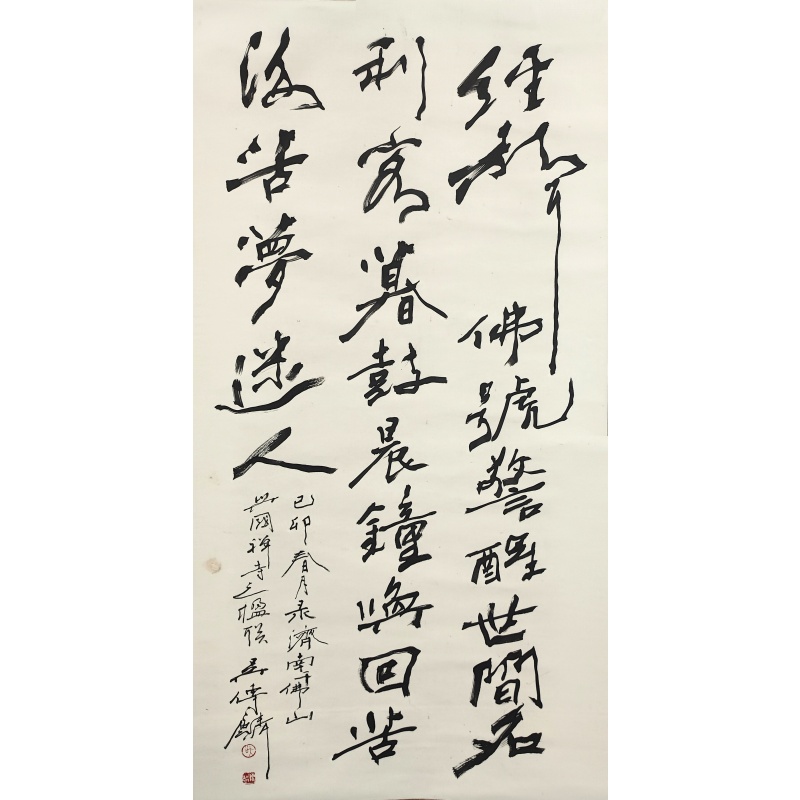 經聲佛號警醒世間名
利客暮鼓晨鐘喚回苦
海苦夢迷人
己卯春月录濟南千佛山
興國禅寺之楹联 吴傳麟